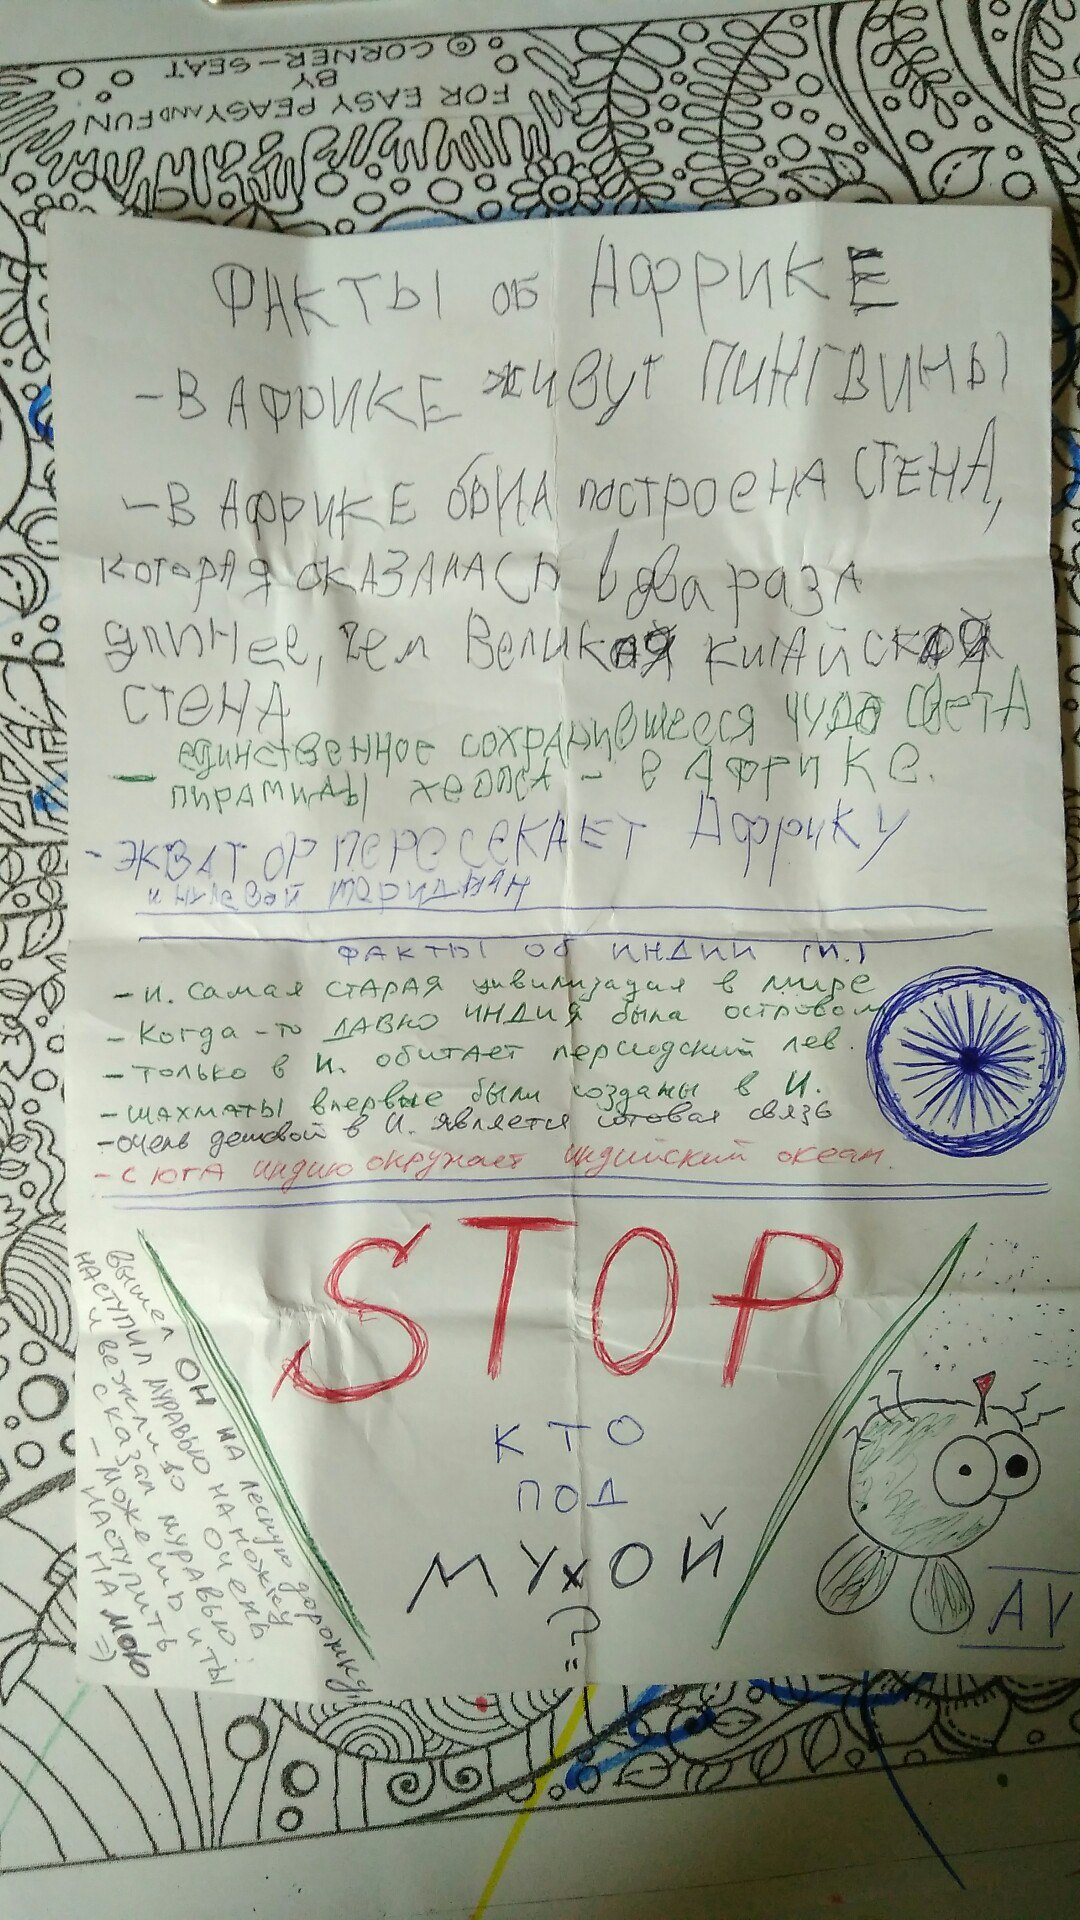 © CORNER-SEAT
BY
FOR EASY PEASY AND FUN
ФАКТЫ ОБ АФРИКЕ
- В АФРИКЕ живут ПИНГВИНЫ
- В АФРИКЕ была построена СТЕНА,
которая оказалась в два раза
длинее, чем Великая китайская
СТЕНА
единственное сохранившееся чудо света
- пирамиды хеопса - в Африке.
- ЭКВАТОР ПЕРЕСЕКАЕТ Африку
и нулевой меридиан
ФАКТЫ ОБ ИНДИИ (И.)
- И. самая СТАРАЯ цивилизация в мире
- Когда-то ДАВНО ИНДИЯ была островом
- только в И. обитает персидский лев.
- шахматы впервые были созданы в И.
- очень дешовой в И. является сотовая связь
- с юга индию окружает индийский океан.
STOP
КТО
ПОД
МУХОЙ
=)
вышел ОН на лесную дорожку,
наступил муравью на ножку
и вежливо очень
сказал муравью:
- може шь и ты
наступить
на мою
=)
AV